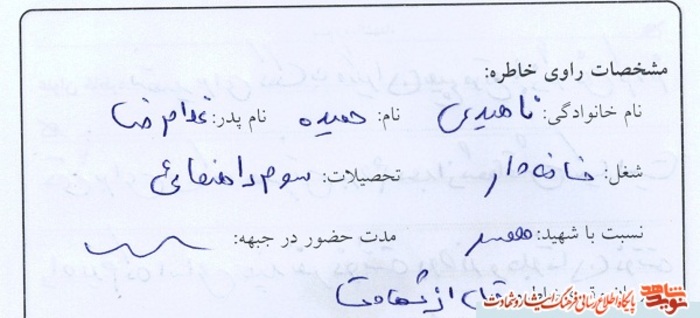 مشخصات راوی خاطره:
نام خانوادگی: ناهیدی نام: حمیده نام پدر: غلامرضا
شغل: خانه دار تحصیلات: سوم راهنمائی
نسبت با شهید: همسر مدت حضور در جبهه:
قبل از شهادت
نوید شاهد
پایگاه اطلاع رسانی فرهنگ ایثار و شهادت